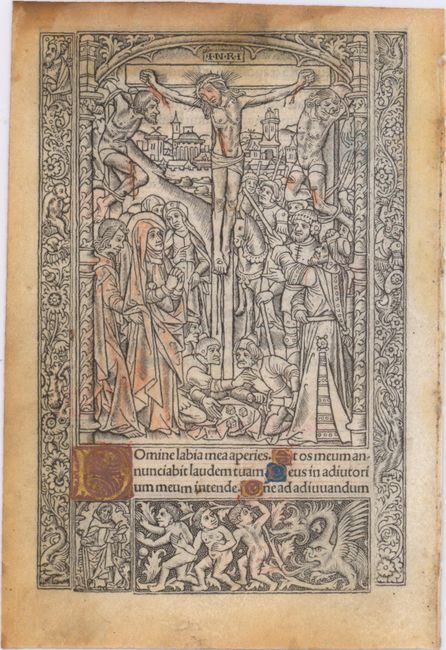 ·I·N·R·I·
Domine labia mea aperies. Et os meum an-
nunciabit laudem tuam Deus in adiutori
um meum intende. Dne ad adiuvandum